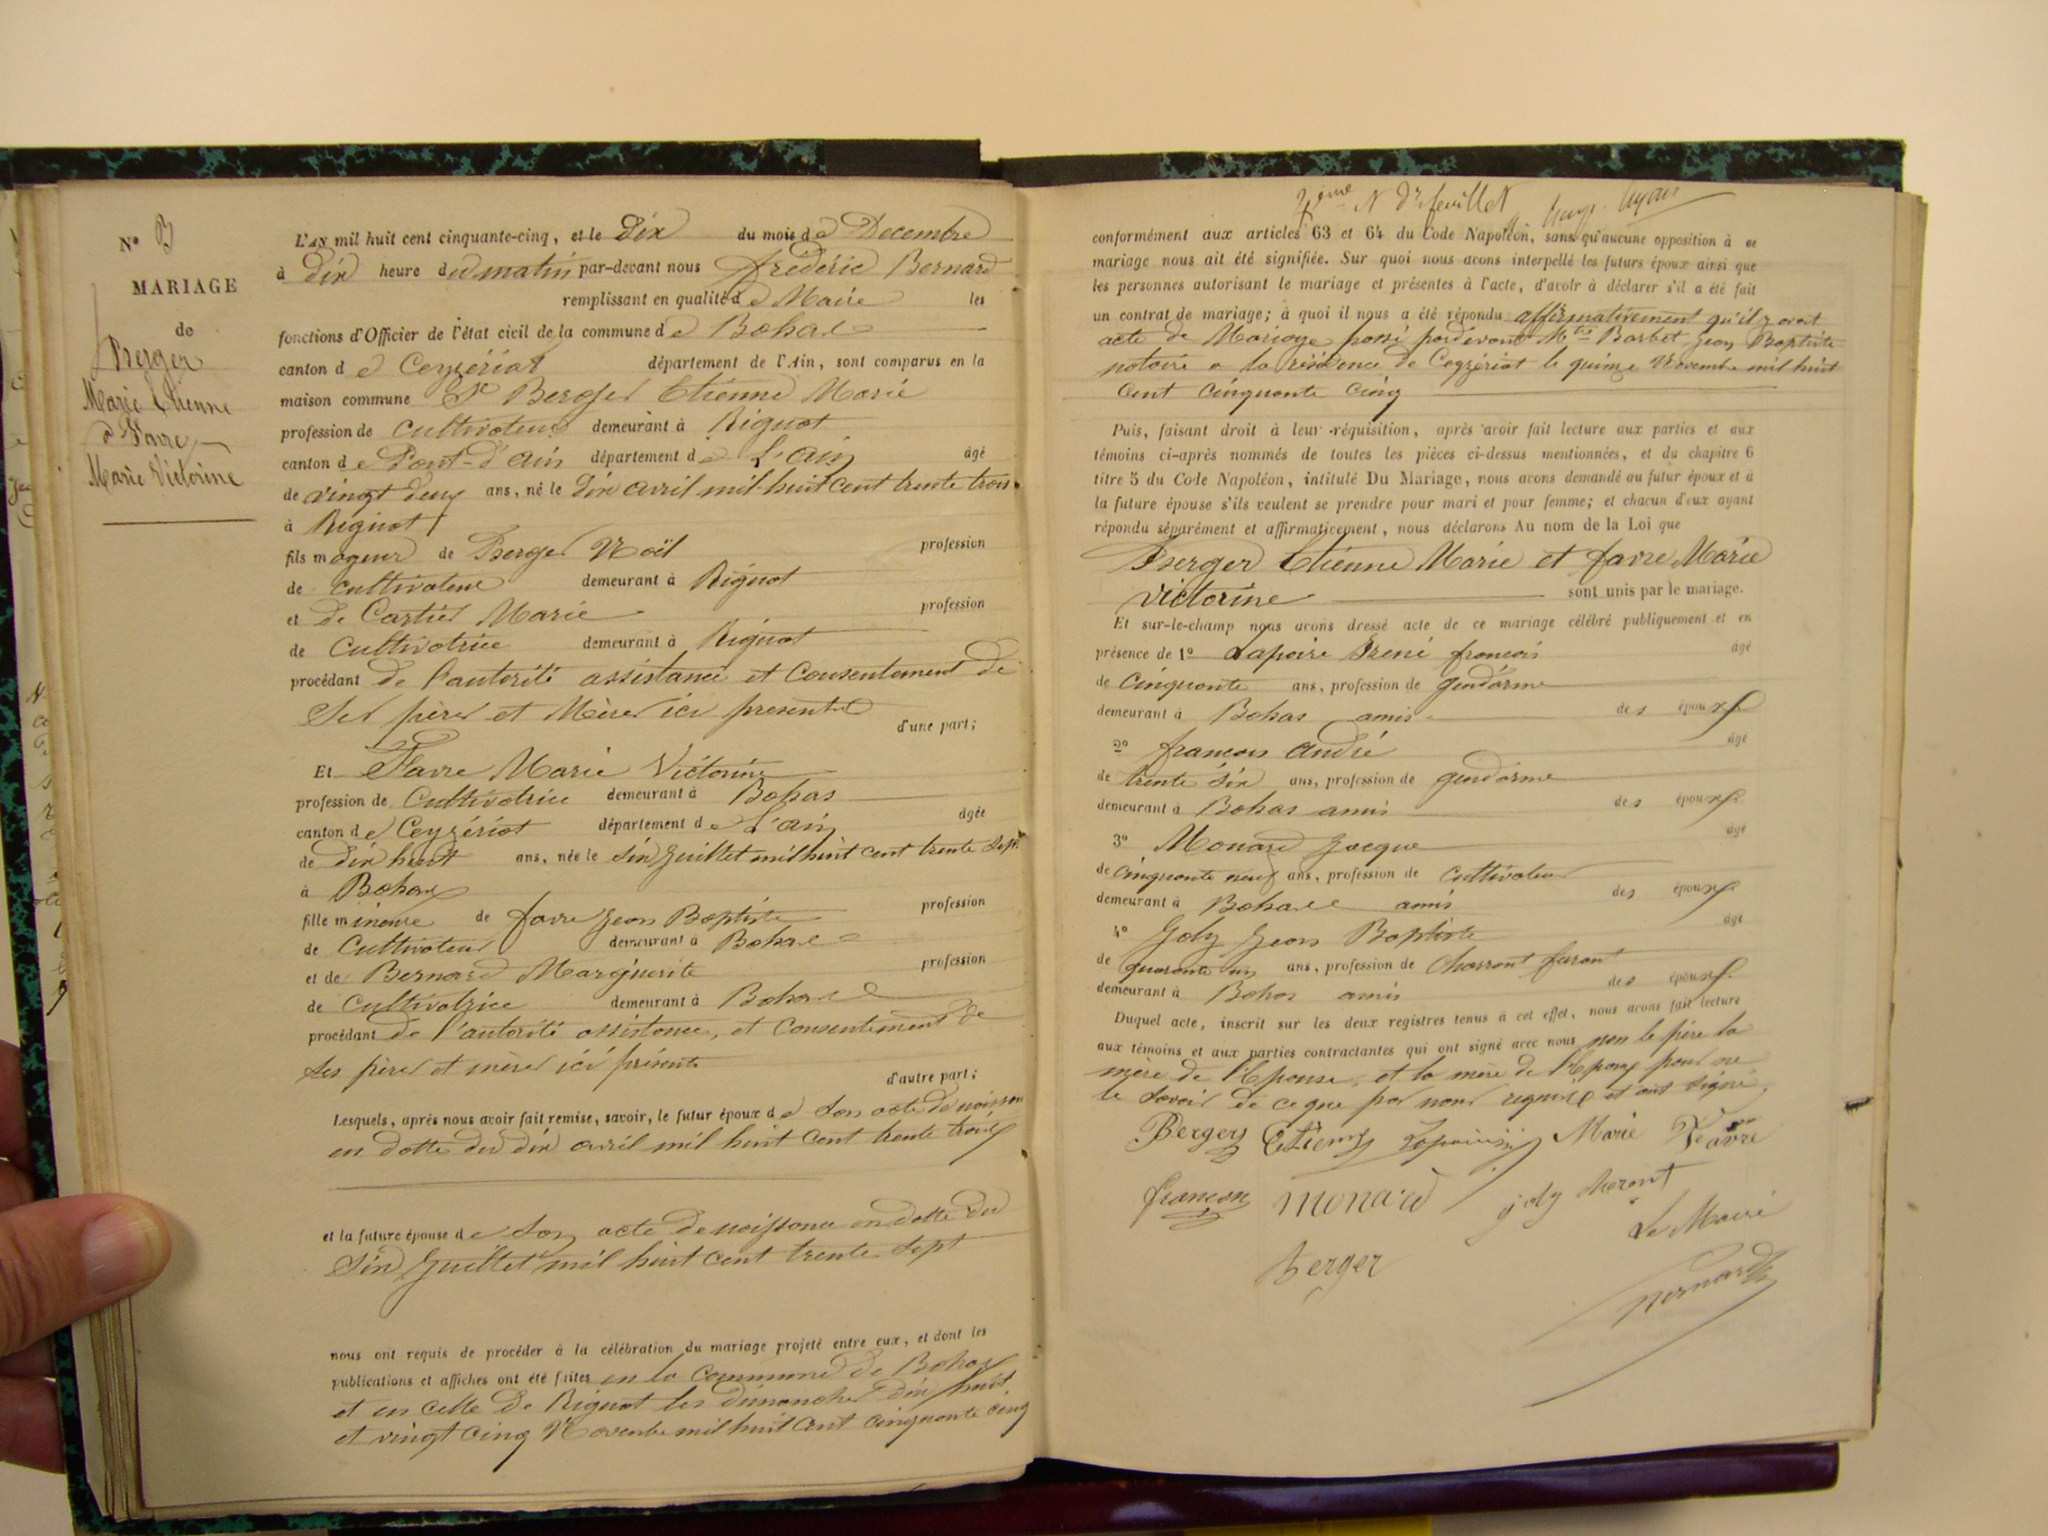 N° 3
MARIAGE
de
Berger
Marie Etienne
& Favre
Marie Victorine
L'AN mil huit cent cinquante-cinq, et le dix du mois de Decembre
à dix heure du matin par-devant nous frédéric Bernard
remplissant en qualité de Maire les
fonctions d'Officier de l'état civil de la commune de Bohas
canton de Ceyzériat département de l'Ain, sont comparus en la
maison commune Sr Berger Etienne Marie
profession de cultivateur demeurant à Rignat
canton de Pont-d'ain département de L'ain âgé
de vingt deux ans, né le dix avril mil huit cent trente trois
à Rignat
fils mageur de Berger Noël profession
de cultivateur demeurant à Rignat
et de Cartier Marie profession
de cultivatrice demeurant à Rignat
procédant de l'autorité assistance et consentement de
ses père et Mère ici present d'une part;
Et Favre Marie Victorine
profession de Cultivatrice demeurant à Bohas
canton de Ceyzériat département de L'ain agée
de dix huit ans, née le six Juillet mil huit cent trente sept
à Bohas
fille mineure de favre Jean Baptiste profession
de Cultivateur demeurant à Bohas
et de Bernard Marguerite profession
de cultivatrice demeurant à Bohas
procédant de l'autorité assistance, et consentement de
ses père et mère ici présent d'autre part;
Lesquels, après nous avoir fait remise, savoir, le futur époux de son acte de naissance
en datte du dix avril mil huit cent trente trois
et la future épouse de son acte de naissance en datte du
six Juillet mil huit cent trente sept
nous ont requis de procéder à la célébration du mariage projeté entre eux, et dont les
publications et affiches ont été faites en la commune de Bohas
et en celle de Rignat les dimanches dix huit
et vingt cinq Novembre mil huit cent cinquante cinq
feuillet
conformément aux articles 63 et 64 du Code Napoléon, sans qu'aucune opposition à ce
mariage nous ait été signifiée. Sur quoi nous avons interpellé les futurs époux ainsi que
les personnes autorisant le mariage et présentes à l'acte, d'avoir à déclarer s'il a été fait
un contrat de mariage; à quoi il nous a été répondu affirmativement qu'il y avait
acte de Mariage passé pardevant Barbet Jean Baptiste
notaire a la résidence de Ceyzériat le quinze Novembre mil huit
cent cinquante cinq
Puis, faisant droit à leur réquisition, après avoir fait lecture aux parties et aux
témoins ci-après nommés de toutes les pièces ci-dessus mentionnées, et du chapitre 6
titre 5 du Code Napoléon, intitulé Du Mariage, nous avons demandé au futur époux et à
la future épouse s'ils veulent se prendre pour mari et pour femme; et chacun d'eux ayant
répondu séparément et affirmativement, nous déclarons Au nom de la Loi que
Berger Etienne Marie et favre Marie
victorine sont unis par le mariage.
Et sur-le-champ nous avons dressé acte de ce mariage célébré publiquement et en
présence de 1° Lapoire françois âgé
de cinquante ans, profession de gendarme
demeurant à Bohas amis des époux
2° françois andré âgé
de trente six ans, profession de gendarme
demeurant à Bohas amis des époux
3° Monard Jacque âgé
de cinquante neuf ans, profession de cultivateur
demeurant à Bohas amis des époux
4° Joly Jean Baptiste âgé
de quarante un ans, profession de
demeurant à Bohas amis des époux
Duquel acte, inscrit sur les deux registres tenus à cet effet, nous avons fait lecture
aux témoins et aux parties contractantes qui ont signé avec nous non le père la
mère de l'Epouse, et la mère de l'Epoux pour ne
le savoir de ce que par nous requis et ont signé
Berger Etienne Marie Feavre
françois monard joly
Le Maire
Berger
Bernard